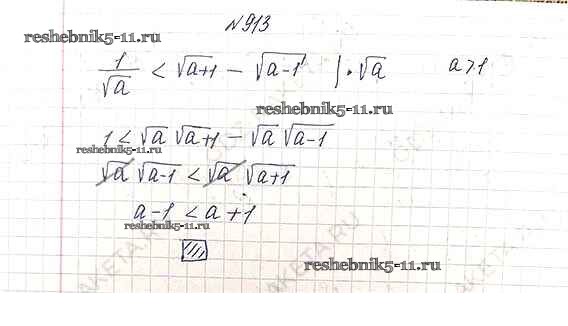 № 913
reshebnik5-11.ru
1/√a < √a+1 − √a−1 | · √a a > 1
reshebnik5-11.ru
1 < √a √a+1 − √a √a−1
reshebnik5-11.ru
√a √a−1 < √a √a+1
a − 1 < a + 1
reshebnik5-11.ru
reshebnik5-11.ru